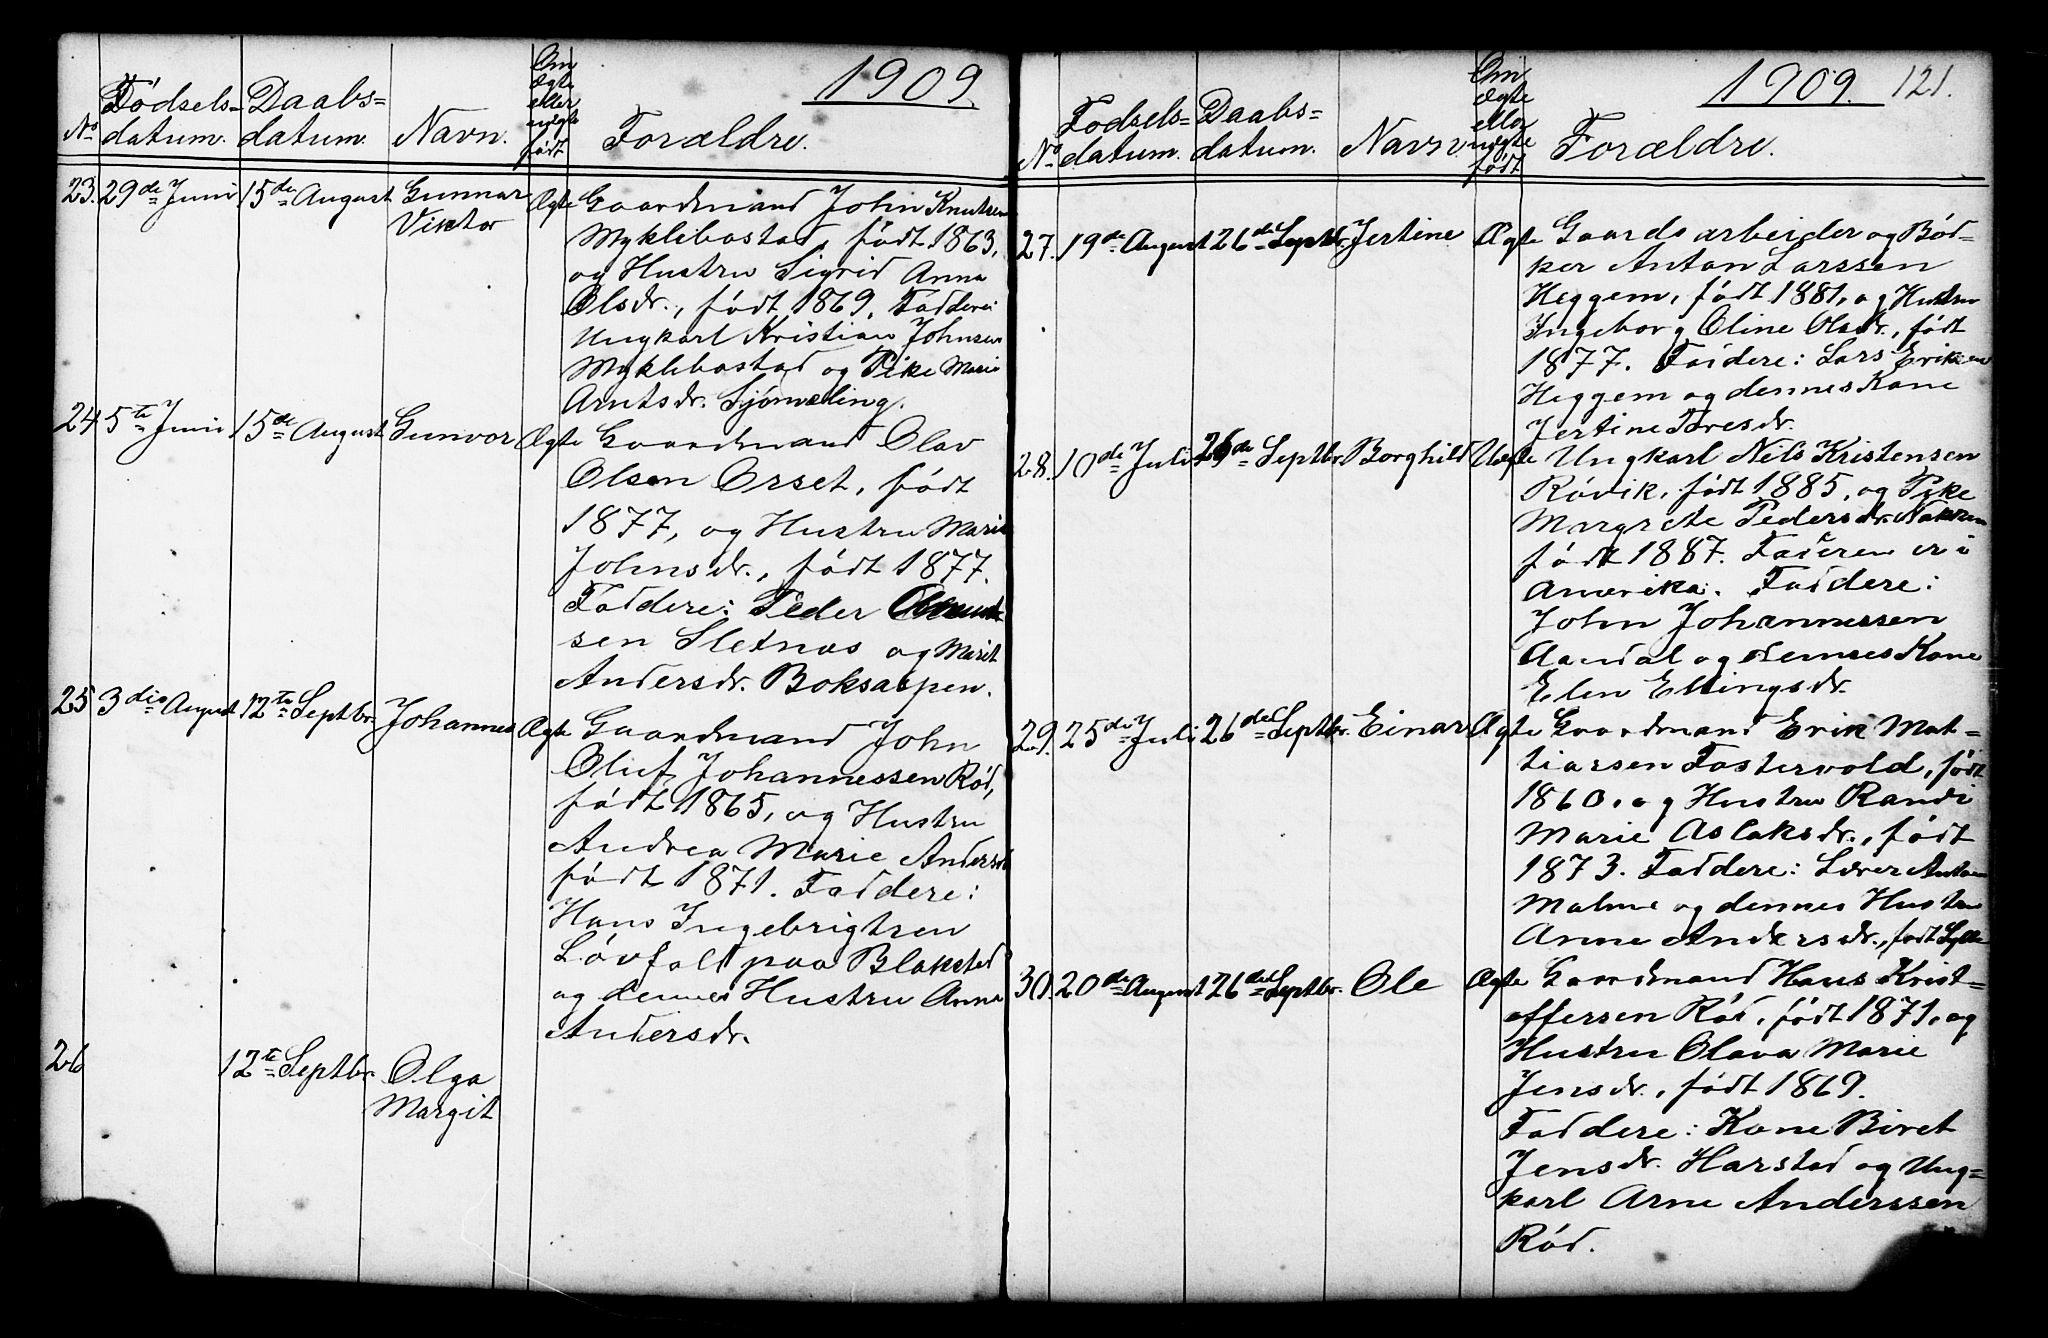 1909.
Nº
Fødsels-
datum.
Daabs-
datum.
Navn.
Om
Ægte
eller
uægte
født
Forældre.
23. 29de Juni 15de August Gunnar
Viktor
Ægte Gaardmand John Knutsen
Myklebostad, født 1863,
og Hustru Sigrid Anna
Olsdr., født 1869. Faddere:
Ungkarl Kristian Johnsen
Myklebostad og Pike Marie
Arntsdr. Sjømæling.
24 5te Juni 15de August Gunvor Ægte Gaardmand Olav
Olsen Orset, født
1877, og Hustru Marie
Johnsdr., født 1877.
Faddere: Peder
sen Sletnæs og Marit
Andersdr. Boksaspen.
25 3die August 12te Septbr. Johannes Ægte Gaardmand John
Oluf Johannessen Rød,
født 1865, og Hustru
Andrea Marie Andersdr
født 1871. Faddere:
Hans Ingebrigtsen
Løvfall paa Blakstad
og dennes Hustru Anna
Andersdr.
26 12te Septbr. Olga
Margit
1909. 121.
Nº
Fødsels-
datum.
Daabs-
datum.
Navn
Om
Ægte
eller
uægte
født
Forældre.
27. 19de August 26de Septbr. Jertine Ægte Gaardsarbeider og Bød-
ker Anton Larssen
Heggem, født 1881, og Hustru
Ingeborg Oline Olsdr., født
1877. Faddere: Lars Eriksen
Heggem og dennes Kone
Jertine Toresdr.
28. 10de Juli 26de Septbr. Borghild Uægte Ungkarl Nils Kristensen
Røvik, født 1885, og Pike
Margrete Pedersdr.
født 1887. Faderen er i
Amerika. Faddere:
John Johannessen
Aandal og dennes Kone
Elen Ellingsdr.
29. 25de Juli 26de Septbr. Einar Ægte Gaardmand Erik Mat-
tiassen Fostervold, født
1860, og Hustru Randi
Marie Aslaksdr., født
1873. Faddere: Lærer Anton
Malme og dennes Hustru
Anne Andersdr., født Sylte
30. 20de August 26de Septbr. Ole Ægte Gaardmand Hans Krist-
offersen Rød, født 1871, og
Hustru Olava Marie
Jensdr., født 1869.
Faddere: Kone Biret
Jensdr. Harstad og Ung-
karl Arne Anderssen
Rød.